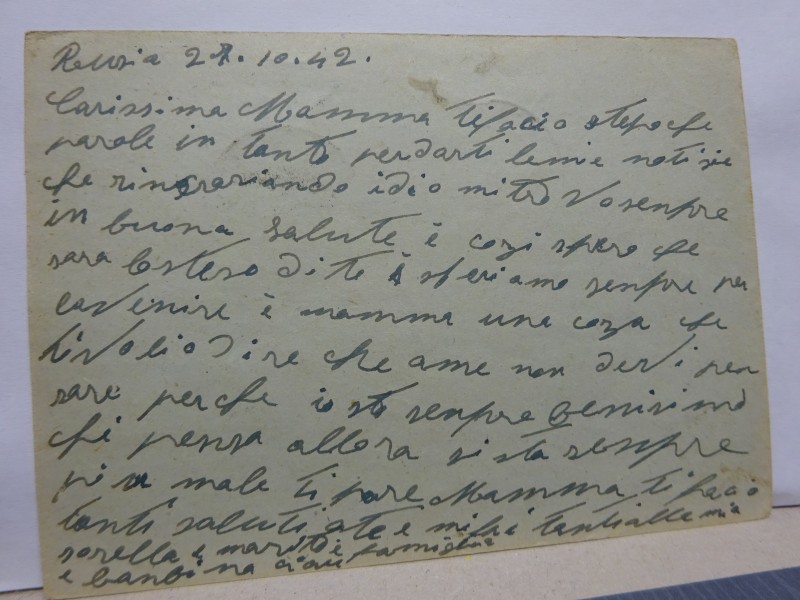 Russia 27.10.42.
Carissima Mamma tifacio stepoche
parole in tanto perdarti lemie notisie
che ringraziando idio mitrovo senpre
in buona salute è cozi spero che
sara lostesso dite è speriamo senpre per
lavenire è mamma una coza che
tivolio dire che ame non devi pen
sare perche io sto senpre benisimo
chi pensa allora si sta senpre
piu male ti pare Mamma ti facio
tanti saluti ate e tanti alle mia
sorella e marito e famiglia
e banbina ciau